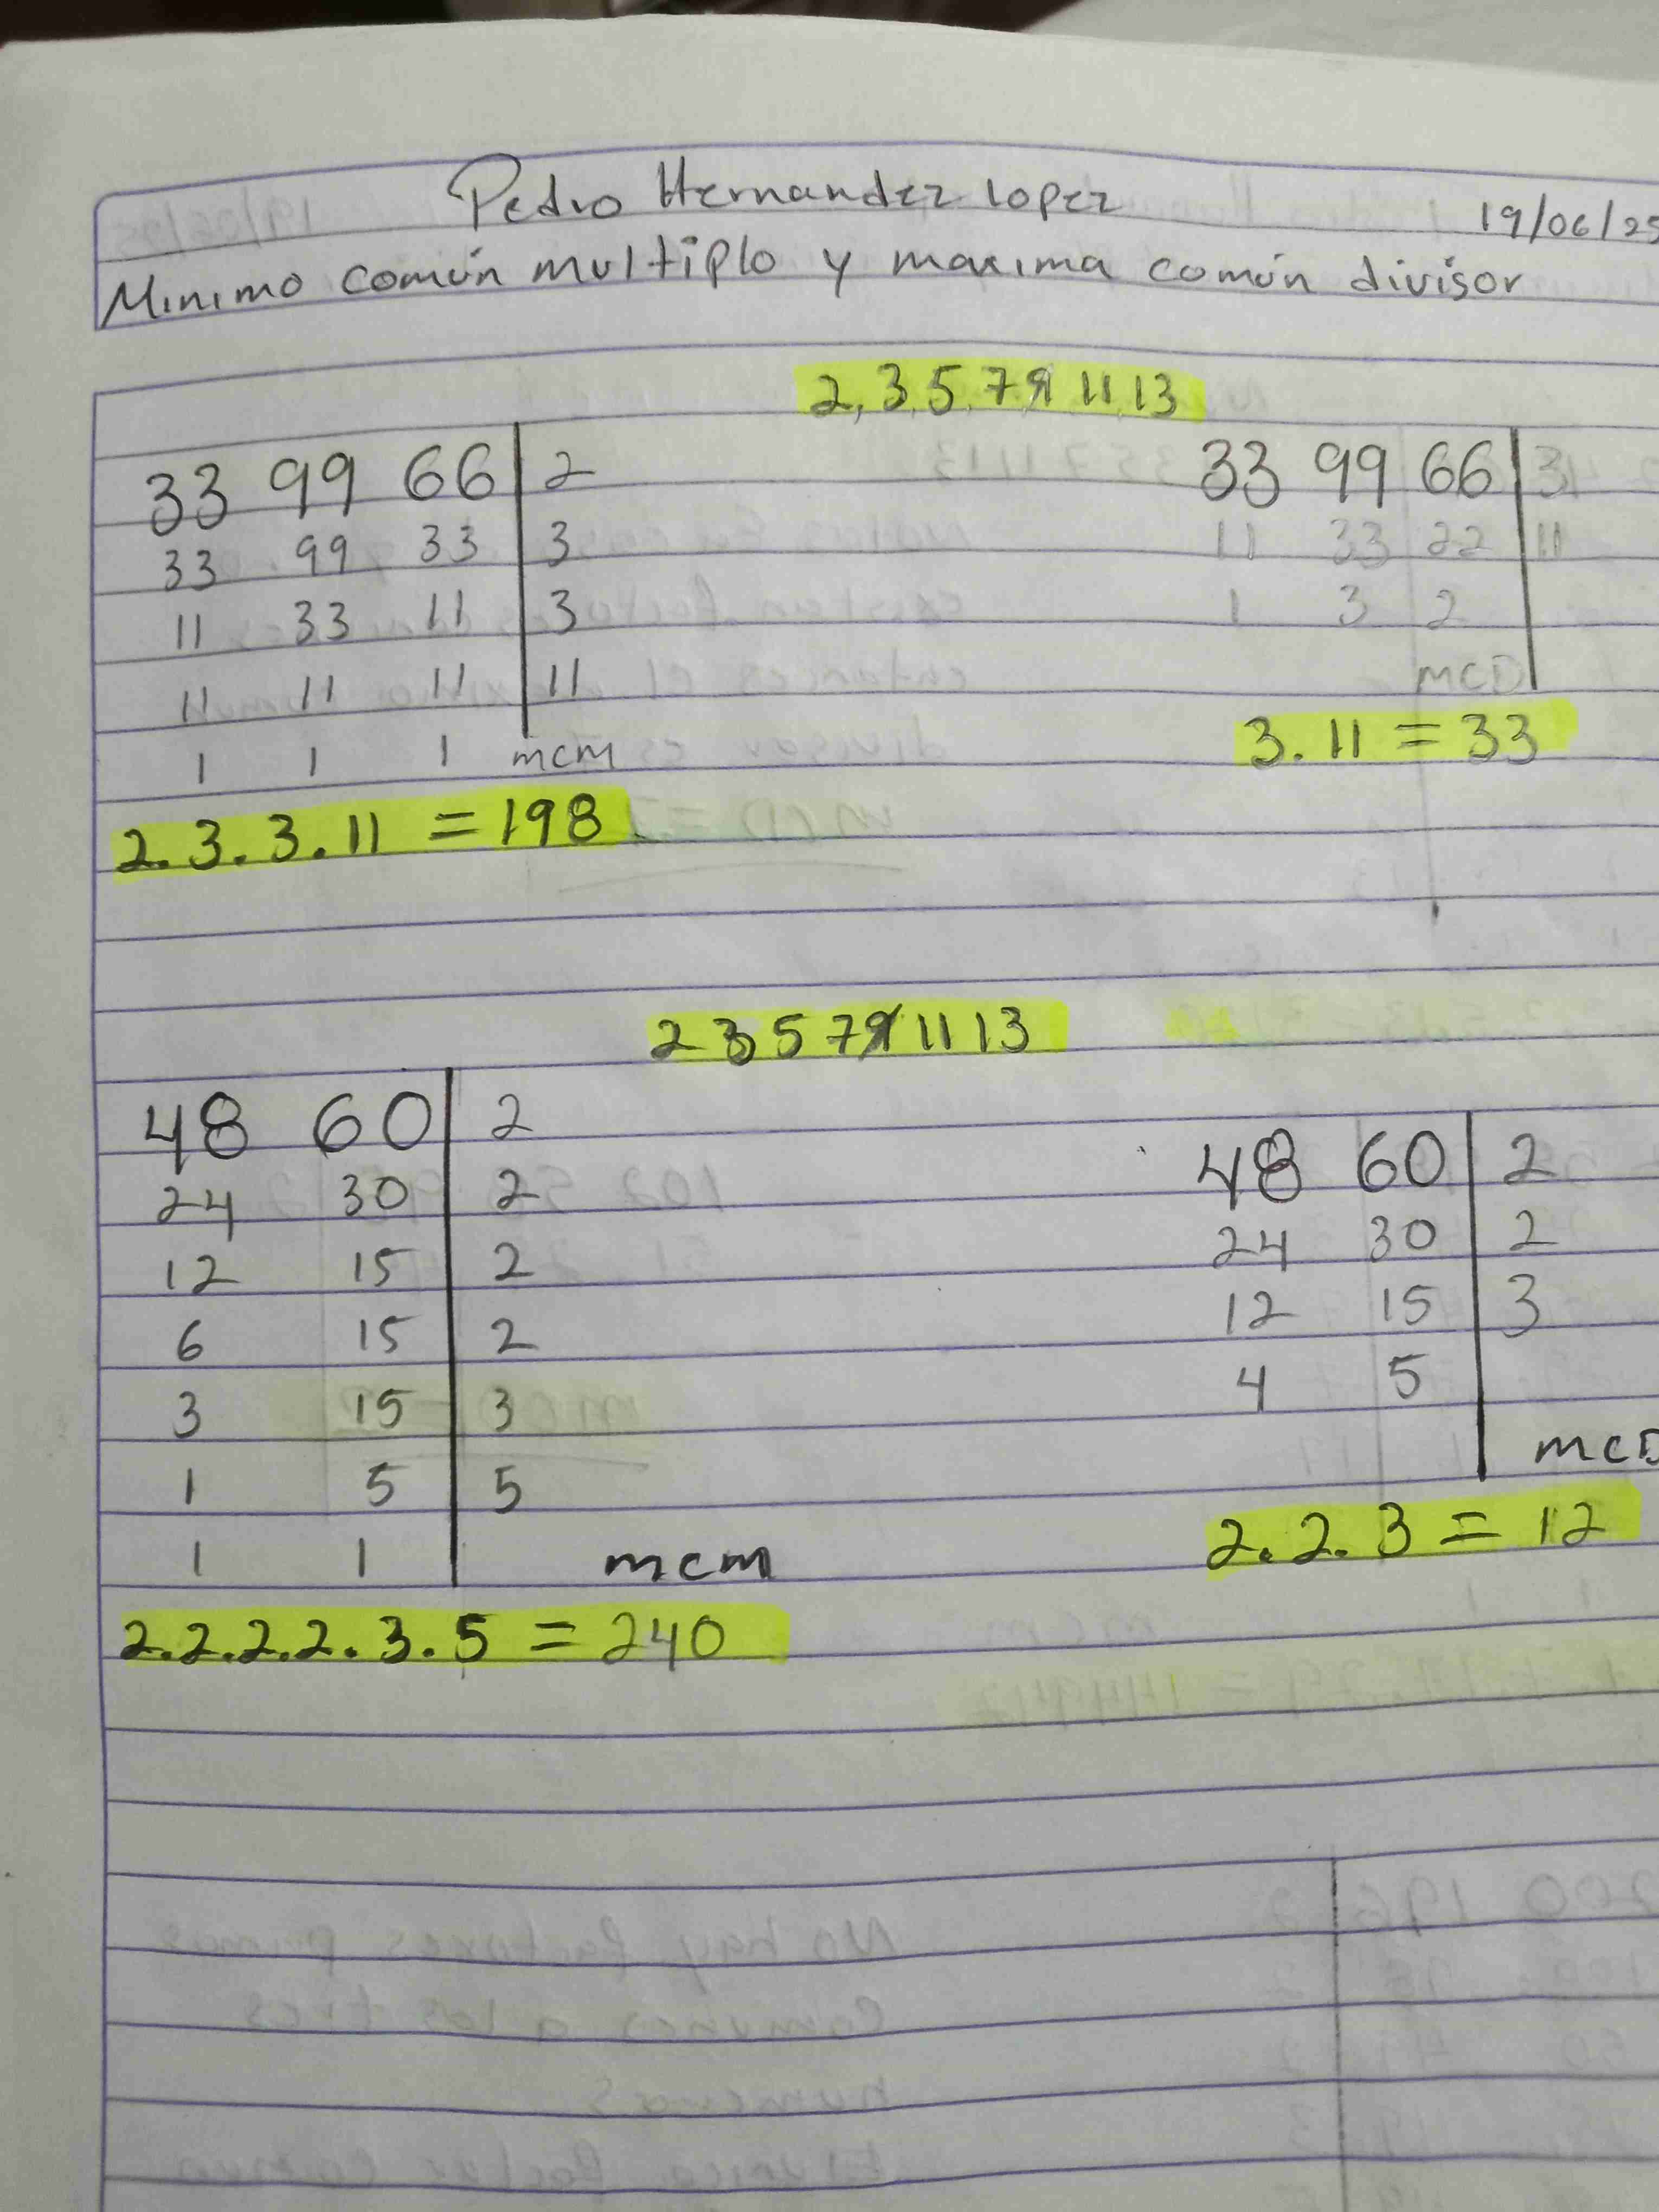 Pedro Hernandez Lopez
19/06/25
Minimo común multiplo y maxima común divisor
2, 3, 5, 7, 9, 11, 13
33 99 66 | 2
33 99 33 | 3
11 33 11 | 3
11 11 11 | 11
1 1 1 mcm
2.3.3.11 = 198
33 99 66 | 3
11 33 22 | 11
1 3 2
MCD
3.11 = 33
2 3 5 7 9 11 13
48 60 | 2
24 30 | 2
12 15 | 2
6 15 | 2
3 15 | 3
1 5 | 5
1 1 mcm
2.2.2.2.3.5 = 240
48 60 | 2
24 30 | 2
12 15 | 3
4 5
mcD
2.2.3 = 12